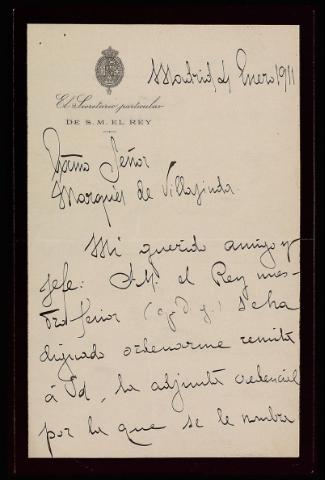 Madrid 4 Enero 1911
El Secretario particular
DE S. M. EL REY
Excmo Señor
Marqués de Villasinda.
Mi querido amigo y
Jefe: S. M. el Rey nues-
tro Señor (q. D. g.) se ha
dignado ordenarme remita
á Vd, la adjunta credencial
por la que se le nombra